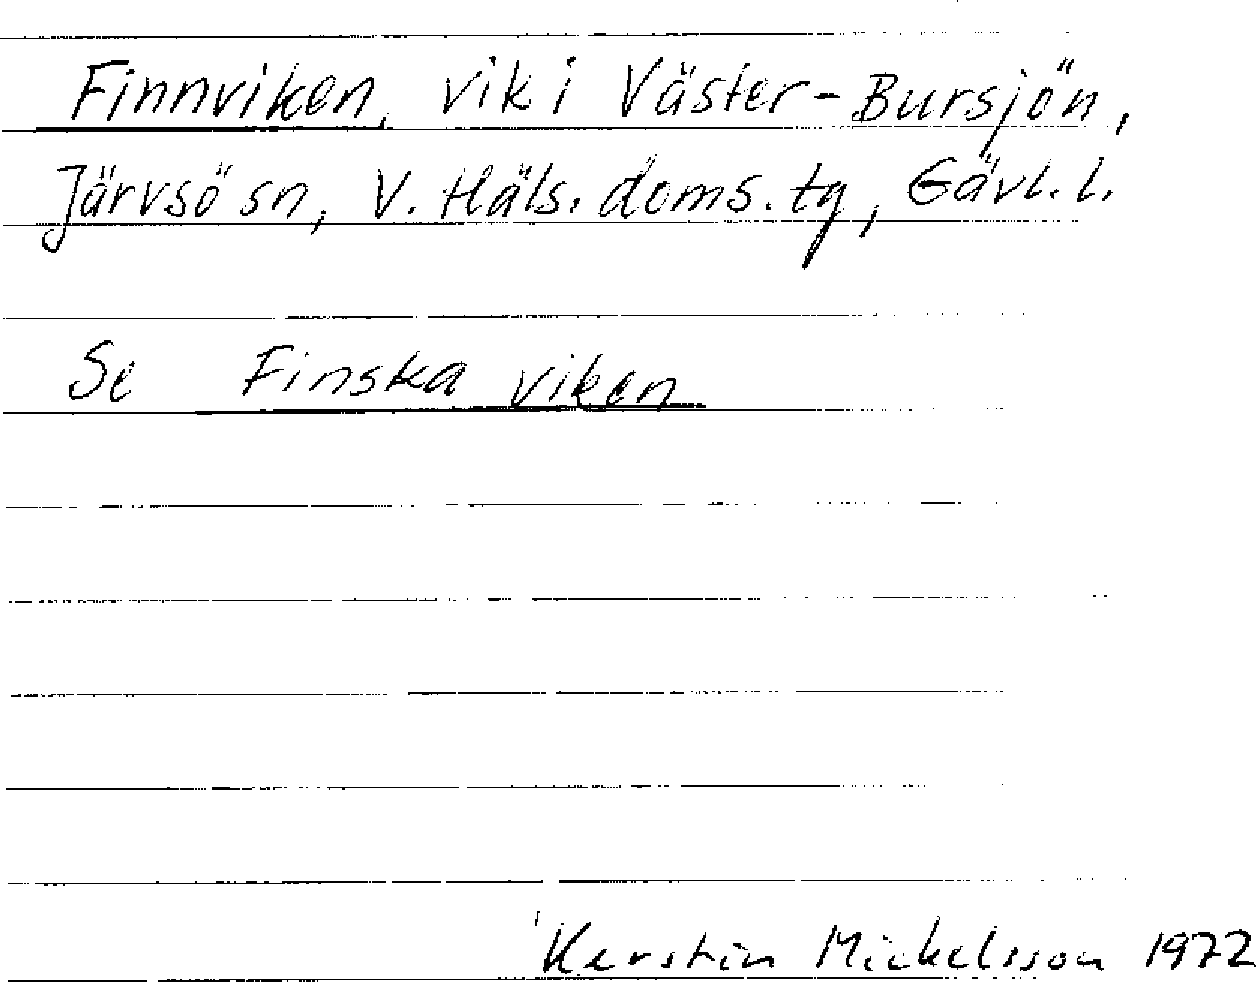 Finnviken, vik i Väster-Bursjön,
Järvsö sn, V. Häls. doms. tg, Gävl. l.
Se Finska viken
Kerstin Mickelsson 1972